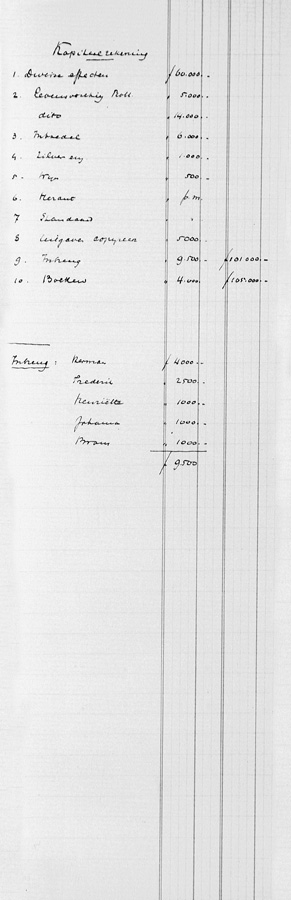 Kapitaalrekening
1. Diverse effecten ƒ 60.000.-
2. Levensverzekg Rott. " 5.000.-
dito " 14.000.-
3. Inboedel " 6.000.-
4. Zilver " 1.000.-
5. Wyn " 500.-
6. " p.m.
7 Standaard " "
8 uitgaven " 5000.-
9. Inbreng " 9.500.- ƒ 101.000.-
10. Boeken " 4.000. ƒ 105.000.-
Inbreng: Herman ƒ 4000.-
Frederik " 2500.-
Henriëtte " 1000.-
Johanna " 1000.-
Bram " 1000.-
ƒ 9500